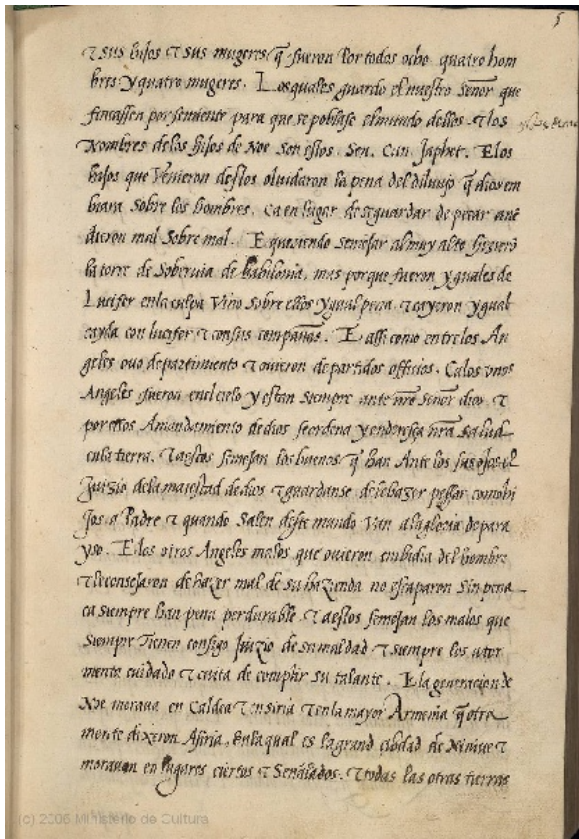 5
τ sus hijos τ sus mugeres q̃ fueron Por todos ocho quatro hom
bres y quatro mugeres. Los quales guardo el nuestro Señor que
fincassen por semiente para que se poblase el mundo dellos τ los
Nombres de los hijos de Noe Son estos. Sen. Can Japhet. E los
hijos que Venieron destos oluidaron la pena del diluuio q̃ dios em
biara Sobre los hombres. Ca en lugar de se guardar de pecar añe
dieron mal Sobre mal. E queriendo Semejar al muy alto hizierõ
la torre de Soberuia de babilonia, mas porque fueron yguales de
Lucifer en la culpa Vino Sobre ellos ygual pena τ cayeron ygual
cayda con lucifer τ con sus compañas. E assi como entre los An
geles ouo departimiento τ ouieron departidos officios. Ca los vnos
Angeles fueron en el cielo y estan Siempre ante nr̃o Señor dios τ
por ellos A mandamiento de dios se ordena y endereça nr̃a Salud
en la tierra. τ a estos semejan los buenos q̃ han Ante los sus ojos el
Juizio de la majestad de dios τ guardanse de le hazer pessar como hi
jos a Padre τ quando Salen deste mundo Van a la gloria de para
yso. E los otros Angeles malos que ouieron embidia del hombre
τ le consejaron de hazer mal de su hazienda no escaparon Sin pena
ca siempre han pena perdurable τ a estos semejan los malos que
Siempre Tienen consigo Juizio de su maldad τ siempre los ator
menta cuidado τ cuita de complir su talante. E la generacion de
Noe moraua en Caldea τ en siria τ en la mayor Armenia q̃ otra
mente dixeron Asiria, en la qual es la grand cibdad de Niniue τ
morauan en lugares ciertos τ Señalados. τ todas las otras tierras
(c) 2006 Ministerio de Cultura